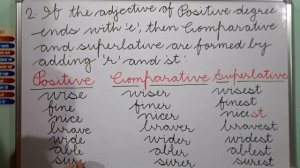 2. If the adjective of Positive degree
ends with 'e', then Comparative
and superlative are formed by
adding 'r' and 'st'
Positive Comparative Superlative
wise wiser wisest
fine finer finest
nice nicer nicest
brave braver bravest
wide wider widest
able abler ablest
surer surest